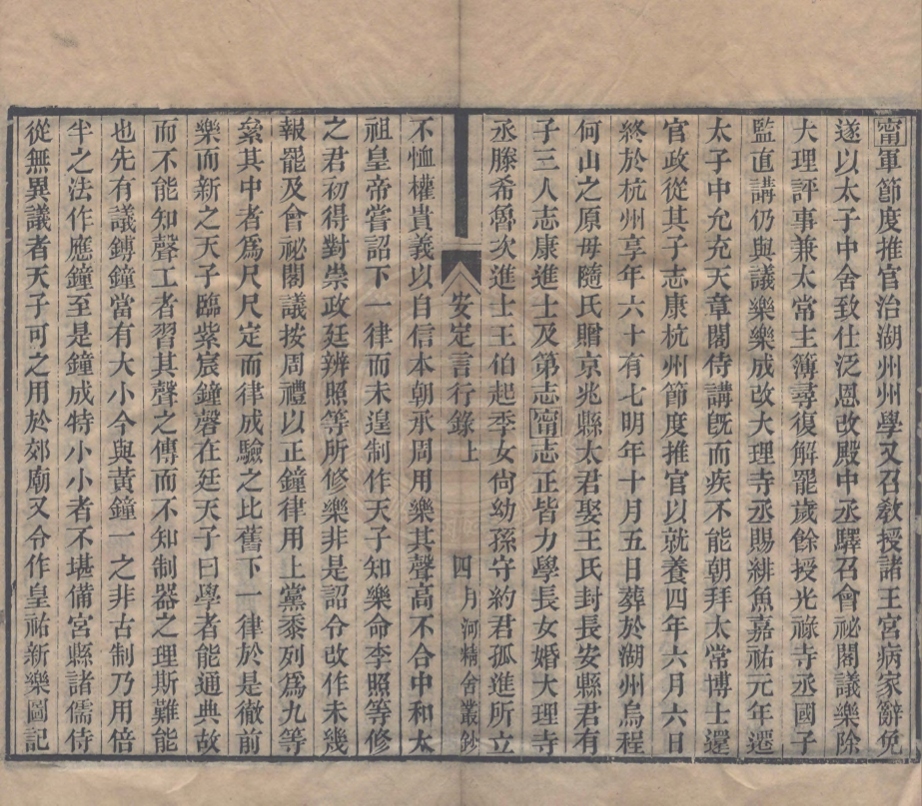 甯軍節度推官治湖州州學又召敎授諸王宮病家辭免
遂以太子中舍致仕泛恩改殿中丞驛召會祕閣議樂除
大理評事兼太常主簿尋復解罷歲餘授光祿寺丞國子
監直講仍與議樂樂成改大理寺丞賜緋魚嘉祐元年遷
太子中允充天章閣侍講旣而疾不能朝拜太常博士還
官政從其子志康杭州節度推官以就養四年六月六日
終於杭州享年六十有七明年十月五日葬於湖州烏程
何山之原毋隨氏贈京兆縣太君娶王氏封長安縣君有
子三人志康進士及第志甯志正皆力學長女婚大理寺
丞滕希魯次進士王伯起季女尙幼孫守約君孤進所立
安定言行錄上 四 月河精舍叢鈔
不恤權貴義以自信本朝承周用樂其聲高不合中和太
祖皇帝嘗詔下一律而未遑制作天子知樂命李照等修
之君初得對崇政廷辨照等所修樂非是詔令改作未幾
報罷及會祕閣議按周禮以正鐘律用上黨黍列爲九等
絫其中者爲尺尺定而律成驗之比舊下一律於是徹前
樂而新之天子臨紫宸鐘磬在廷天子曰學者能通典故
而不能知聲工者習其聲之傳而不知制器之理斯難能
也先有議鎛鐘當有大小今與黃鐘一之非古制乃用倍
半之法作應鐘至是鐘成特小小者不堪備宮縣諸儒侍
從無異議者天子可之用於郊廟又令作皇祐新樂圖記